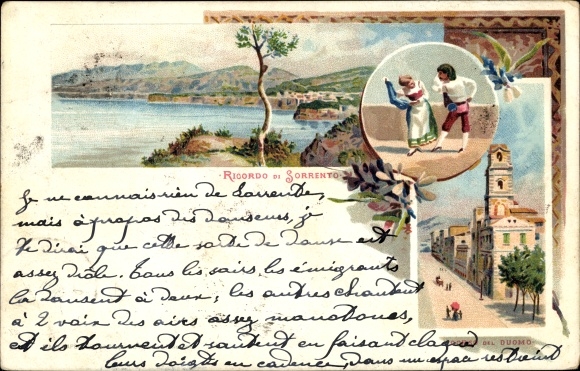 RICORDO DI SORRENTO
DEL DUOMO
Je ne connais rien de Sorrente,
mais à propos des danseurs, je
te dirai que cette sorte de danse est
assez drôle. Tous les soirs les émigrants
la dansent à deux; les autres chantent
à 2 voix des airs assez monotones,
et ils tournent et sautent en faisant claquer
leurs doigts en cadence, dans un espace restreint